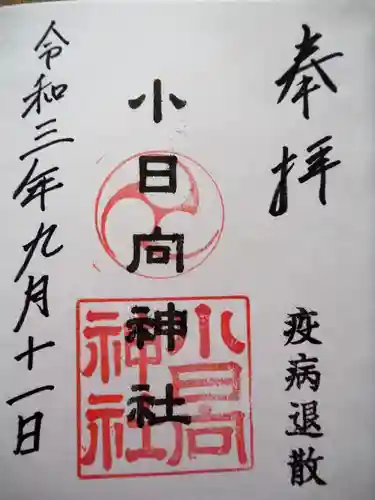 奉拝
疫病退散
小日向神社
小日向
神社
令和三年九月十一日